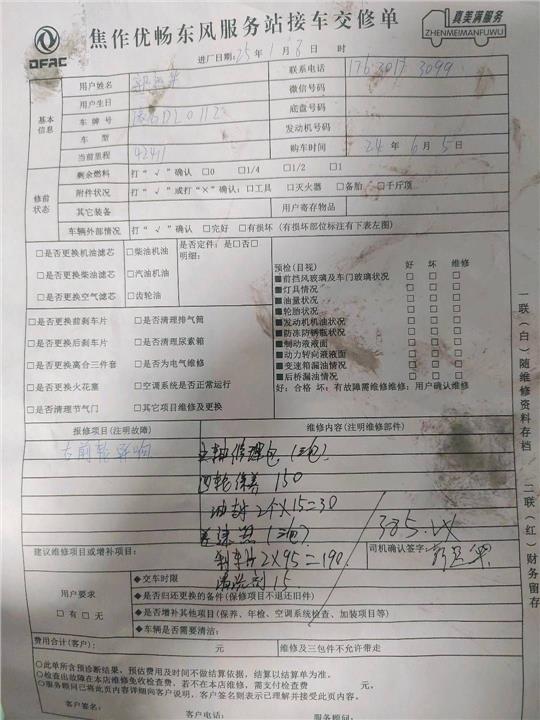 DFAC
焦作优畅东风服务站接车交修单
真美满服务
ZHENMEIMANFUWU
进厂日期:25年1月8日 时
基本信息
用户姓名
联系电话 176 3017 3099
用户生日
微信号码
车牌号
底盘号码
车型
发动机号码
当前里程 42411
购车时间 24年6月5日
修前状态
剩余燃料 打“√”确认 □0 □1/4 □1/2 □1
附件状况 打“√”或打“×”确认:□工具 □灭火器 □备胎 □千斤顶
其它装备
用户寄存物品
车辆外部情况 打“√”确认 □完好 □有损坏(有损坏部位标注有下表左图)
□是否更换机油滤芯 □柴油机油
□是否更换柴油滤芯 □汽油机油
□是否更换空气滤芯 □齿轮油
是否定件:是□否□
明细:
□是否更换前刹车片 □是否清理排气筒
□是否更换后刹车片 □是否清理尿素箱
□是否更换离合三件套 □是否为电气维修
□是否更换火花塞 □空调系统是否正常运行
□是否清理节气门 □其它项目维修及更换
预检(目视) 好 坏 维修
■前挡风玻璃及车门玻璃状况 □ □ □
■灯具情况 □ □ □
■油量状况 □ □ □
■轮胎状况 □ □ □
■发动机机油状况 □ □ □
■防冻防锈瓶状况 □ □ □
■制动液液面 □ □ □
■动力转向液液面 □ □ □
■变速箱漏油情况 □ □ □
■后桥漏油情况 □ □ □
好:合格 坏:有故障需维修维修:用户确认维修
报修项目(注明故障)
维修内容(注明维修部件)
左前轮异响
主轴修理包(三包)
四轮保养 150
油封2个×15=30
385.
刹车片2×95=190
清洗剂15
建议维修项目或增补项目:
司机确认签字:
用户要求
□有 □无
◆交车时限
◆是否归还更换的备件(保修项目不退还旧件)
◆是否增补其他项目(保养、年检、空调系统检查、加装项目等)
◆车辆是否需要清洁:
费用合计(客户): 元
维修及三包件不允许带走
○此单所含预诊断结果、预估费用及时间不做结算依据,结算以结算单为准。
○检查出故障在本店维修免收检查费,若不在本店维修,需支付检查费 元。
○服务顾问已将此页内容详细向客户说明,客户签名则表示已理解并接受此页内容。
客户签名:
客户电话:
服务顾问:
一联(白)随维修资料存档
二联(红)财务留存